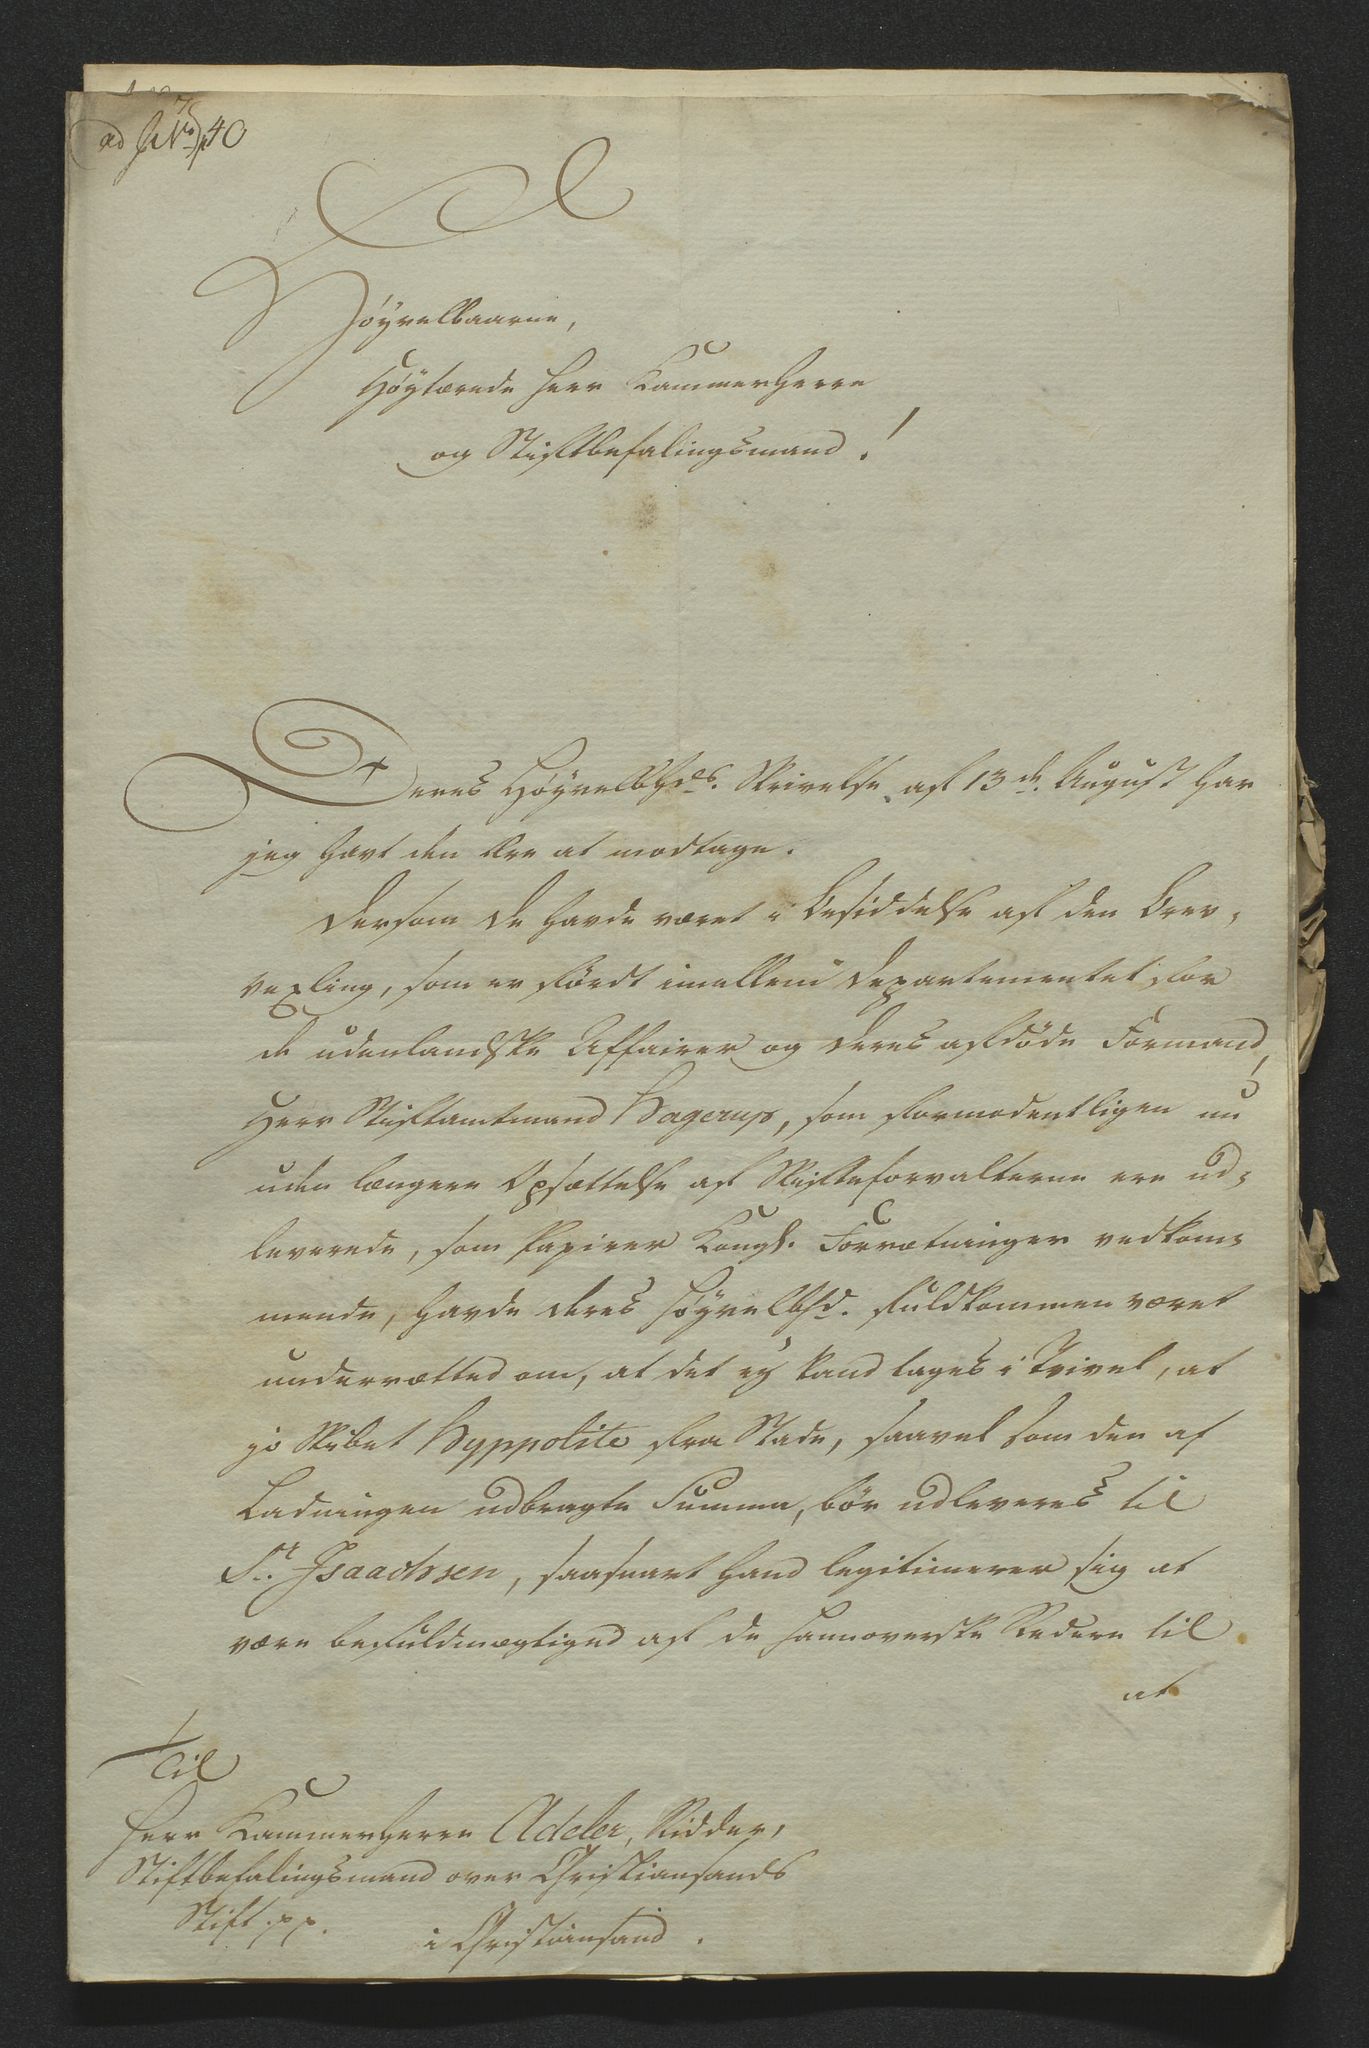 ad No 40
Høyvelbaarne,
Høytærede Herr Kammerherre
og Stiftbefalingsmand!
Deres Høyvelbhds. Skrivelse af 13de. August har
jeg havt den Ære at modtage.
Dersom De havde været i Besiddelse af den Brev-
vexling, som er fördt imellem Departementet for
de udenlandske Affairer og Deres afdöde Formand,
Herr Stiftamtmand Hagerup, som formodentligen nu
uden længere Opsættelse af Skifteforvalterne ere ud-
leverede, som Papirer Kongl. Forretninger vedkom-
mende, havde Deres Høyvelbhd. fuldkommen været
underrætted om, at det ey kand tages i Tvivl, at
jo Skibet Hyppolite fra Stade, saavel som den af
Ladningen udbragte Summa, bör udleveres til
Sr. Isaachsen, saasnart hand legitimerer sig at
være befuldmægtiged af de hannoverske Redere til
at
Til
Herr Kammerherre Adeler, Ridder,
Stiftbefalingsmand over Christiansands
Stift pp.
i Christiansand.